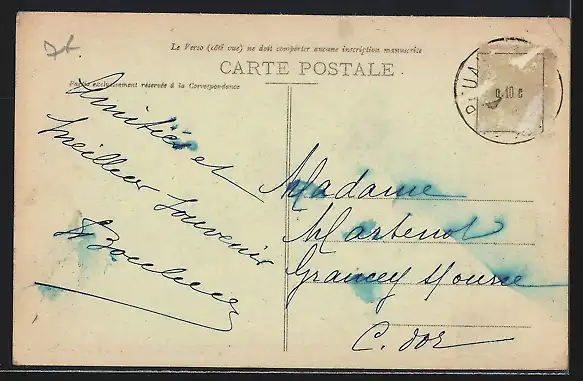 Le Verso (côté vue) ne doit comporter aucune inscription manuscrite
CARTE POSTALE
Partie exclusivement réservée à la Correspondance
Amitiés et
meilleur souvenir
Madame
Martenot
Grancey
C. d'or
0,10 c